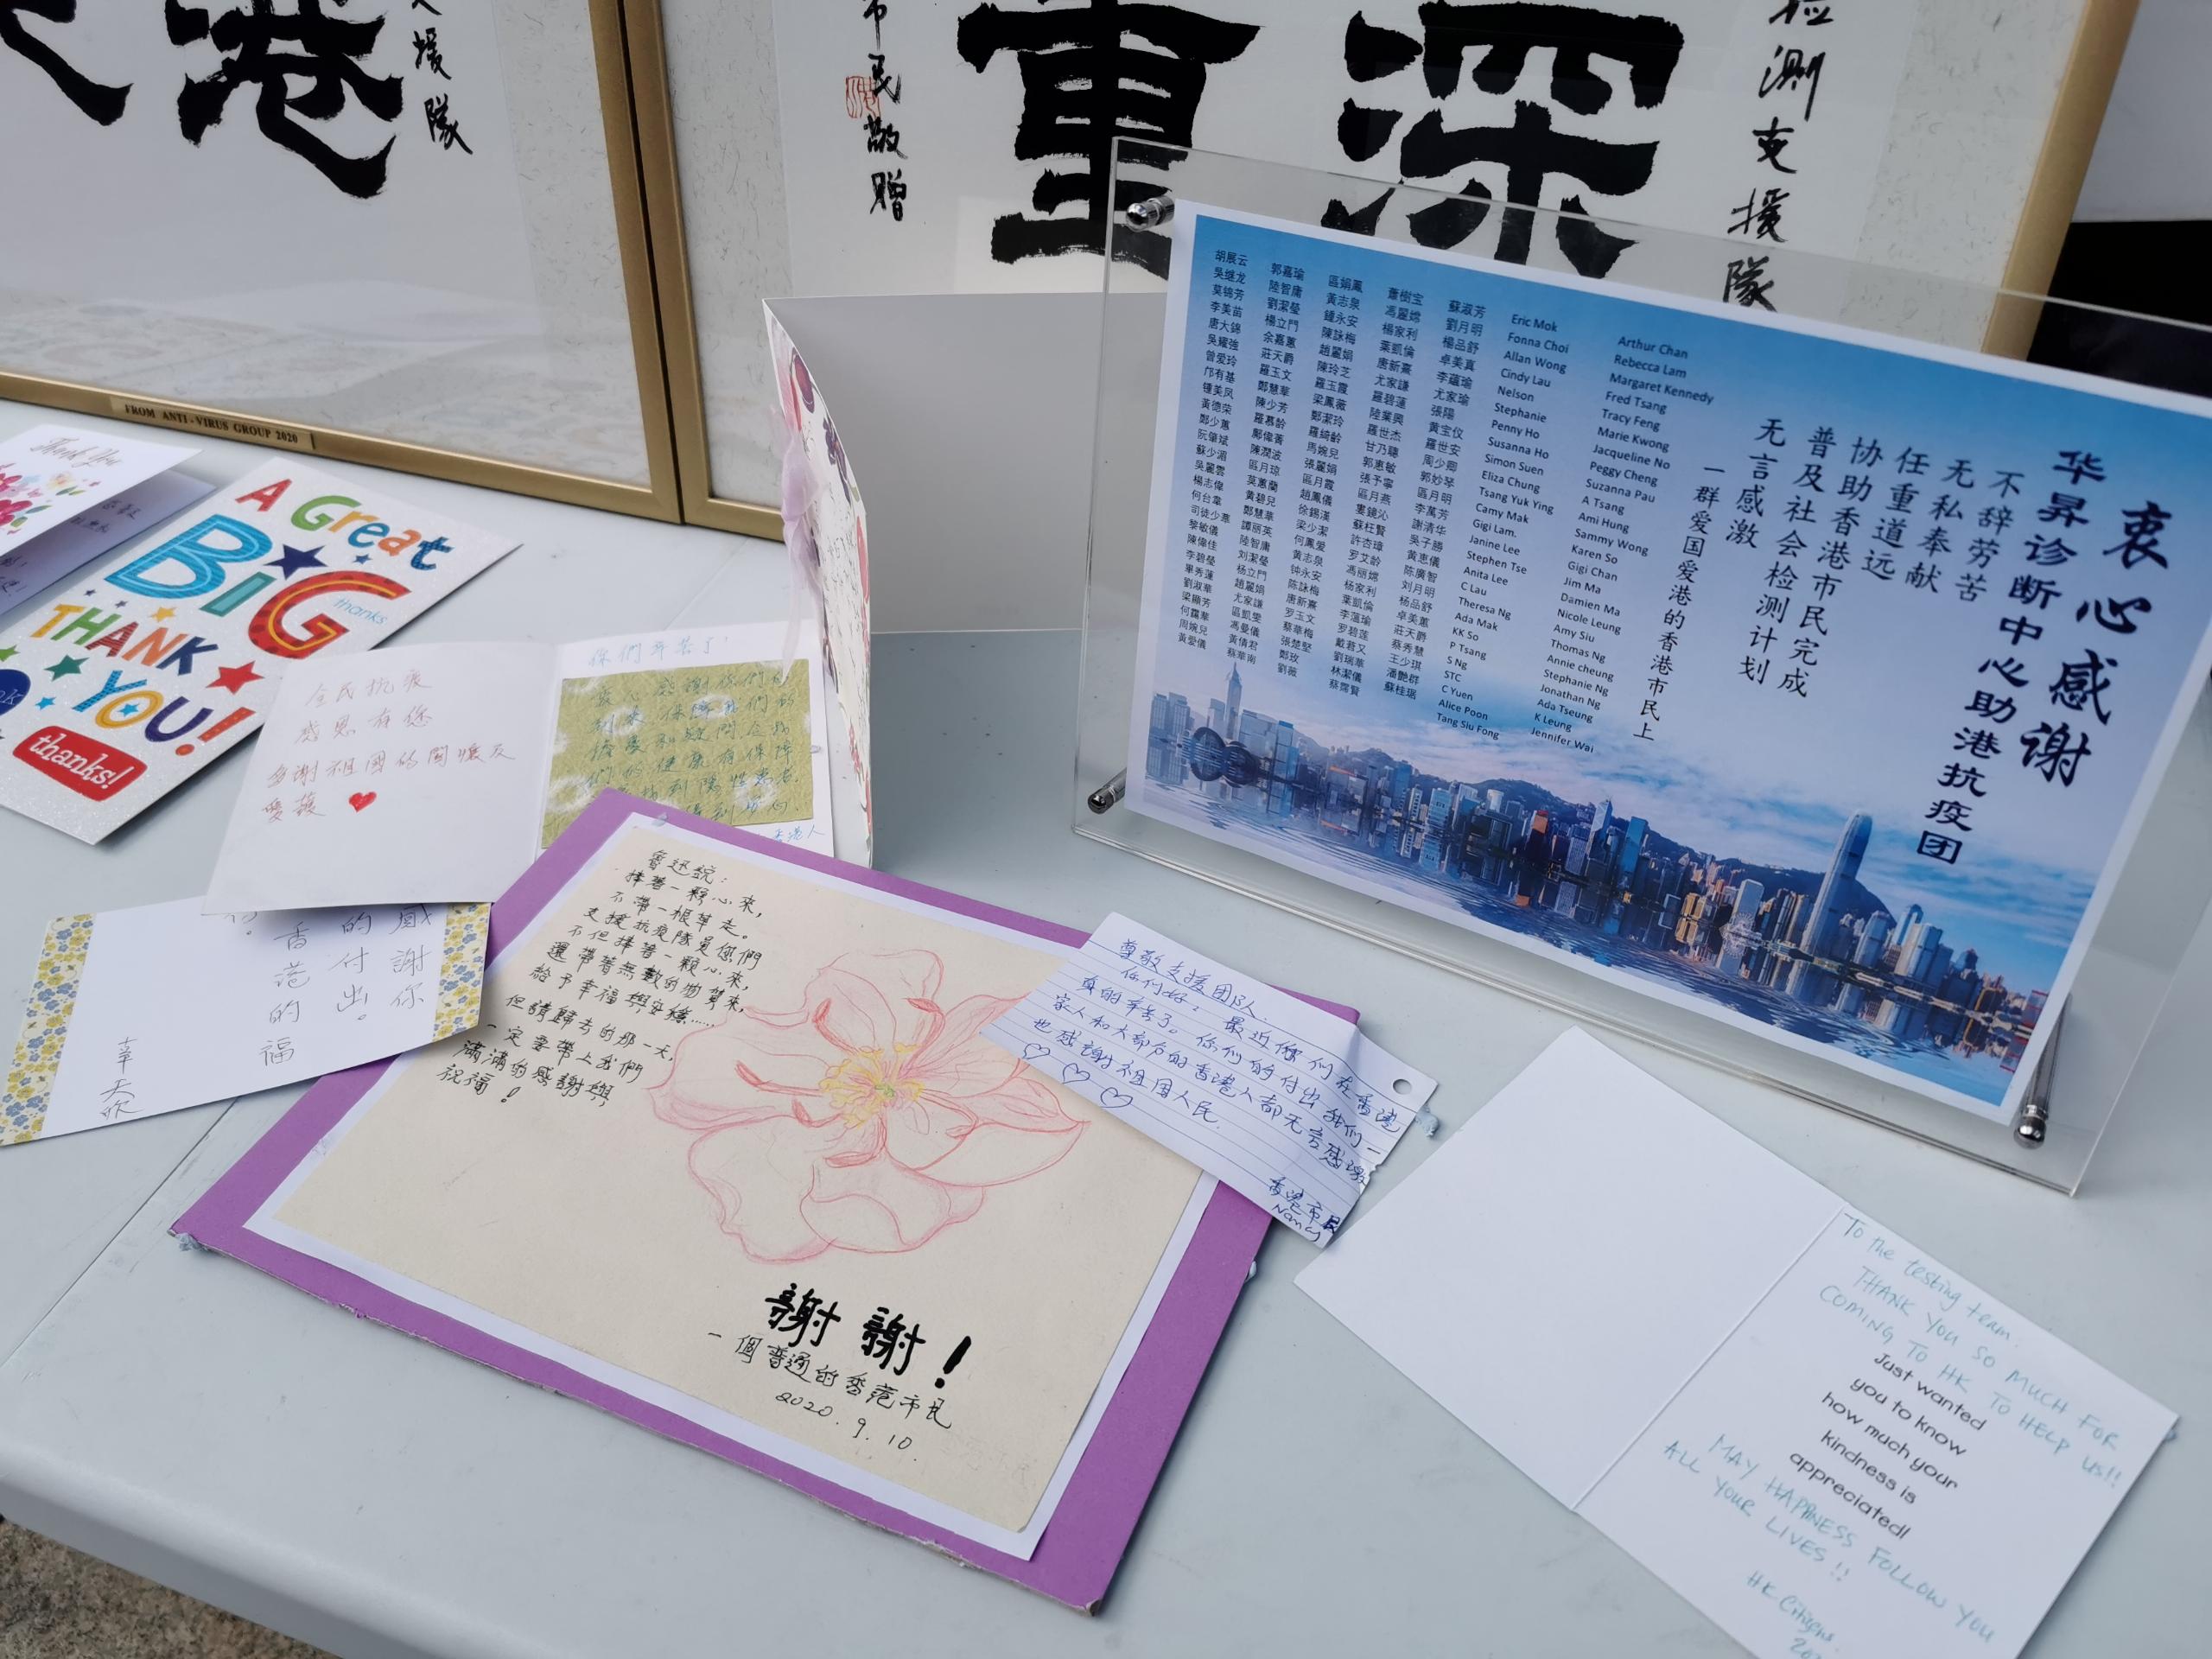 港
援
隊
市民敬贈
重
深
检測支援隊
FROM ANTI-VIRUS GROUP 2020
Thank You
A Great
BIG
thanks
THANK
YOU!
thanks!
全民抗疫
感恩有您
感謝祖國的關懷及
愛護
你們辛苦了!
衷心感謝你們的
到來
香港人
感謝你
的付出。
香港的福
魯迅說:
捧著一顆心來,
不帶一根草走。
支援抗疫隊員您們
不但捧著一顆心來,
還帶著無數的物資來,
給予幸福與安穩......
但請歸去的那一天,
一定要帶上我們
滿滿的感謝與
祝福!
謝謝!
一個普通的香港市民
2020.9.10
尊敬支援团队:
你们好: 最近您们在香港
真的辛苦了。你们的付出我们一
家人和大部分的香港人都无言感激
也感謝祖国人民.
香港市民
Nancy
衷心感谢
华昇诊断中心助港抗疫团
不辞劳苦
无私奉献
任重道远
协助香港市民完成
普及社会检测计划
无言感激
一群爱国爱港的香港市民上
胡展云
吳继龙
莫锦芳
李美苗
唐大錦
吳耀強
曾爱玲
邝有基
锺美凤
黃德荣
鄭少蕙
阮肇斌
蘇少湄
吳麗雲
楊志偉
何台韋
司徒少蕙
黎敏儀
陳偉佳
李碧瑩
畢秀蓮
劉淑華
梁顯芳
何靄華
周婉兒
黃愛儀
郭嘉瑜
陸智庸
劉潔瑩
楊立門
余嘉蕙
莊天爵
羅玉文
鄭慧華
陳少芳
羅慕齡
鄺偉菁
陳潤波
區月琼
莫蕙蘭
黃碧兒
鄭慧華
譚丽英
陸智庸
刘潔瑩
杨立門
趙麗娟
尤家謙
區凱雯
馮曼儀
黃倩君
蔡華南
區娟鳳
黃志泉
鍾永安
陳詠梅
趙麗娟
陳玲芝
羅玉霞
梁鳳薇
鄭潔玲
羅綺齡
馬婉兒
張麗娟
區月霞
趙鳳儀
徐錫漢
梁少潔
何鳳愛
黄志泉
钟永安
陈詠梅
唐新熹
罗玉文
蔡華梅
張楚堅
鄭玫
劉薇
蕭樹宝
馮麗嫦
楊家利
葉凱倫
唐新熹
尤家謙
羅碧蓮
陸業興
羅世杰
甘乃聰
郭惠敏
張予寧
區月燕
婁鏡沁
蘇枉賢
許杏璋
罗艾齡
馮丽嫦
杨家利
葉凱倫
李蕴瑜
罗碧莲
戴君又
劉瑞華
林潔儀
蔡霈賢
蘇淑芳
劉月明
楊品舒
卓美真
李蘊瑜
尤家瑜
張陽
黄宝仪
羅世安
周少卿
郭妙琴
區月明
李萬芳
謝清华
吳子勝
黄恵儀
陈廣智
刘月明
杨品舒
卓美蕙
莊天爵
蔡秀慧
王少琪
潘艷群
蘇桂琚
Eric Mok
Fonna Choi
Allan Wong
Cindy Lau
Nelson
Stephanie
Penny Ho
Susanna Ho
Simon Suen
Eliza Chung
Tsang Yuk Ying
Camy Mak
Gigi Lam.
Janine Lee
Stephen Tse
Anita Lee
C Lau
Theresa Ng
Ada Mak
KK So
P Tsang
S Ng
STC
C Yuen
Alice Poon
Tang Siu Fong
Arthur Chan
Rebecca Lam
Margaret Kennedy
Fred Tsang
Tracy Feng
Marie Kwong
Jacqueline No
Peggy Cheng
Suzanna Pau
A Tsang
Ami Hung
Sammy Wong
Karen So
Gigi Chan
Jim Ma
Damien Ma
Nicole Leung
Amy Siu
Thomas Ng
Annie cheung
Stephanie Ng
Jonathan Ng
Ada Tseung
K Leung
Jennifer Wai
To the testing team..
THANK YOU SO MUCH FOR
COMING TO HK TO HELP US!!
Just wanted
you to know
how much your
kindness is
appreciated!
MAY HAPPINESS FOLLOW YOU
ALL YOUR LIVES!!
HK Citizens